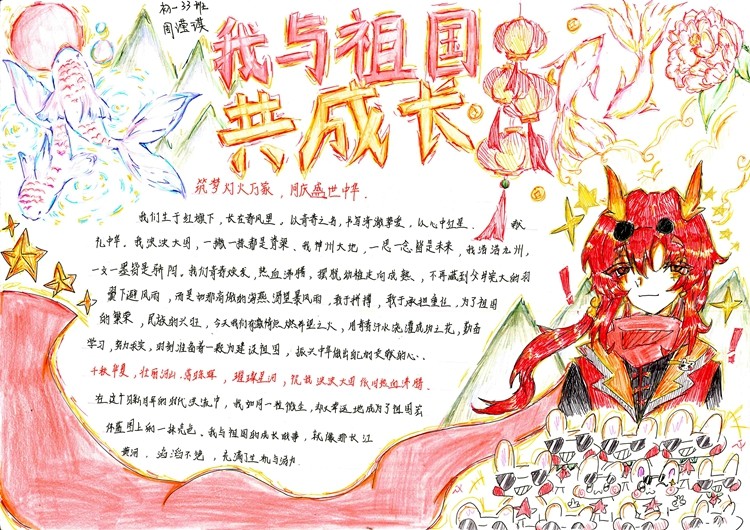 初一33班
周滢璞
我与祖国
共成长
筑梦灯火万家，同庆盛世中华.
我们生于红旗下，长在春风里，以青春之名，书写
九中华. 我泱泱大国，一撇一捺都是脊梁，我神州大地，一思一念皆是未来，我浩浩九州，
一文一墨皆是，我们青春焕发，热血沸腾，摆脱幼稚走向成熟、不再藏到父母宽大的羽
翼下避风雨，而是如那高傲的海燕渴望暴风雨，敢于拼搏，敢于承担重任，为了祖国
的繁荣，民族的兴旺，今天我们点燃希望之火，用青春汗水浇灌成功之花，勤奋
学习，努力求实，时刻准备着一颗为建设祖国，振兴中华做出贡献的心..
千秋华夏，壮丽河山，璀璨星河，我泱泱大国热血沸腾
在这个日新月异的时代洪流中，我如同一粒微尘，却又幸运地成为了祖国宏
伟蓝图上的一抹亮色。我与祖国的成长故事，就像那长江
黄河，滔滔不绝，充满了生机与活力